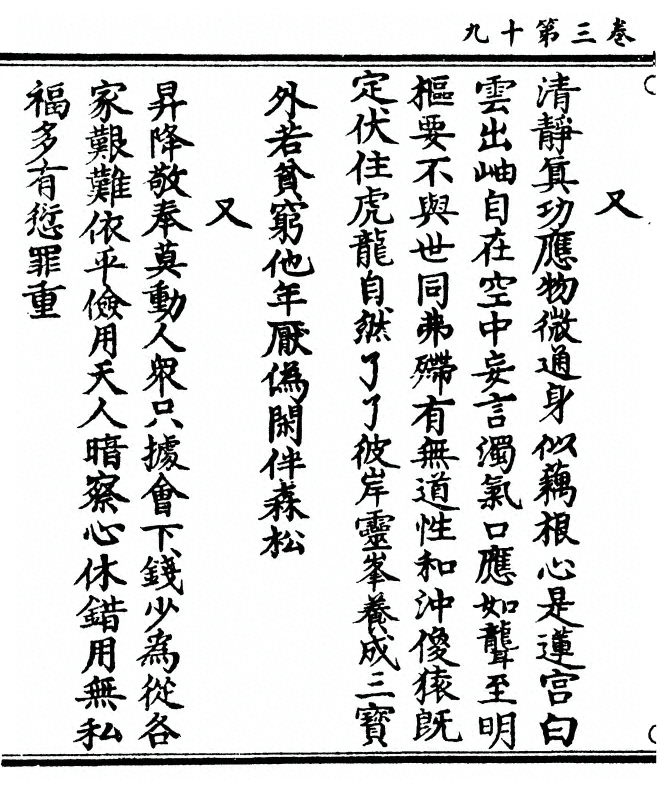 卷三第十九
又
清靜真功應物微通身似藕根心是蓮宮白
雲出岫自在空中妄言濁氣口應如聾至明
樞要不與世同弗殢有無道性和沖傻猿既
定伏住虎龍自然了了彼岸靈峯養成三寶
外若貧窮他年厭偽閑伴森松
又
昇降敬奉莫動人衆只據會下錢少為從各
家艱難依平儉用天人暗察心休錯用無私
福多有愆罪重